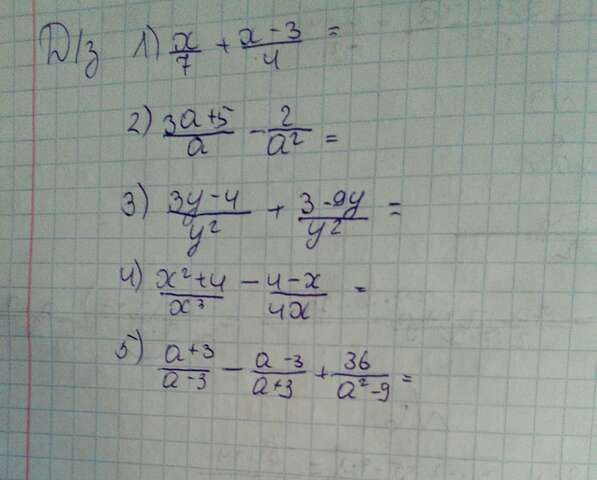 Д/з 1) x/7 + x-3/4 =
2) 3a+5/a - 2/a² =
3) 3y-4/y² + 3-9y/y² =
4) x²+4/x³ - 4-x/4x =
5) a+3/a-3 - a-3/a+3 + 36/a²-9 =